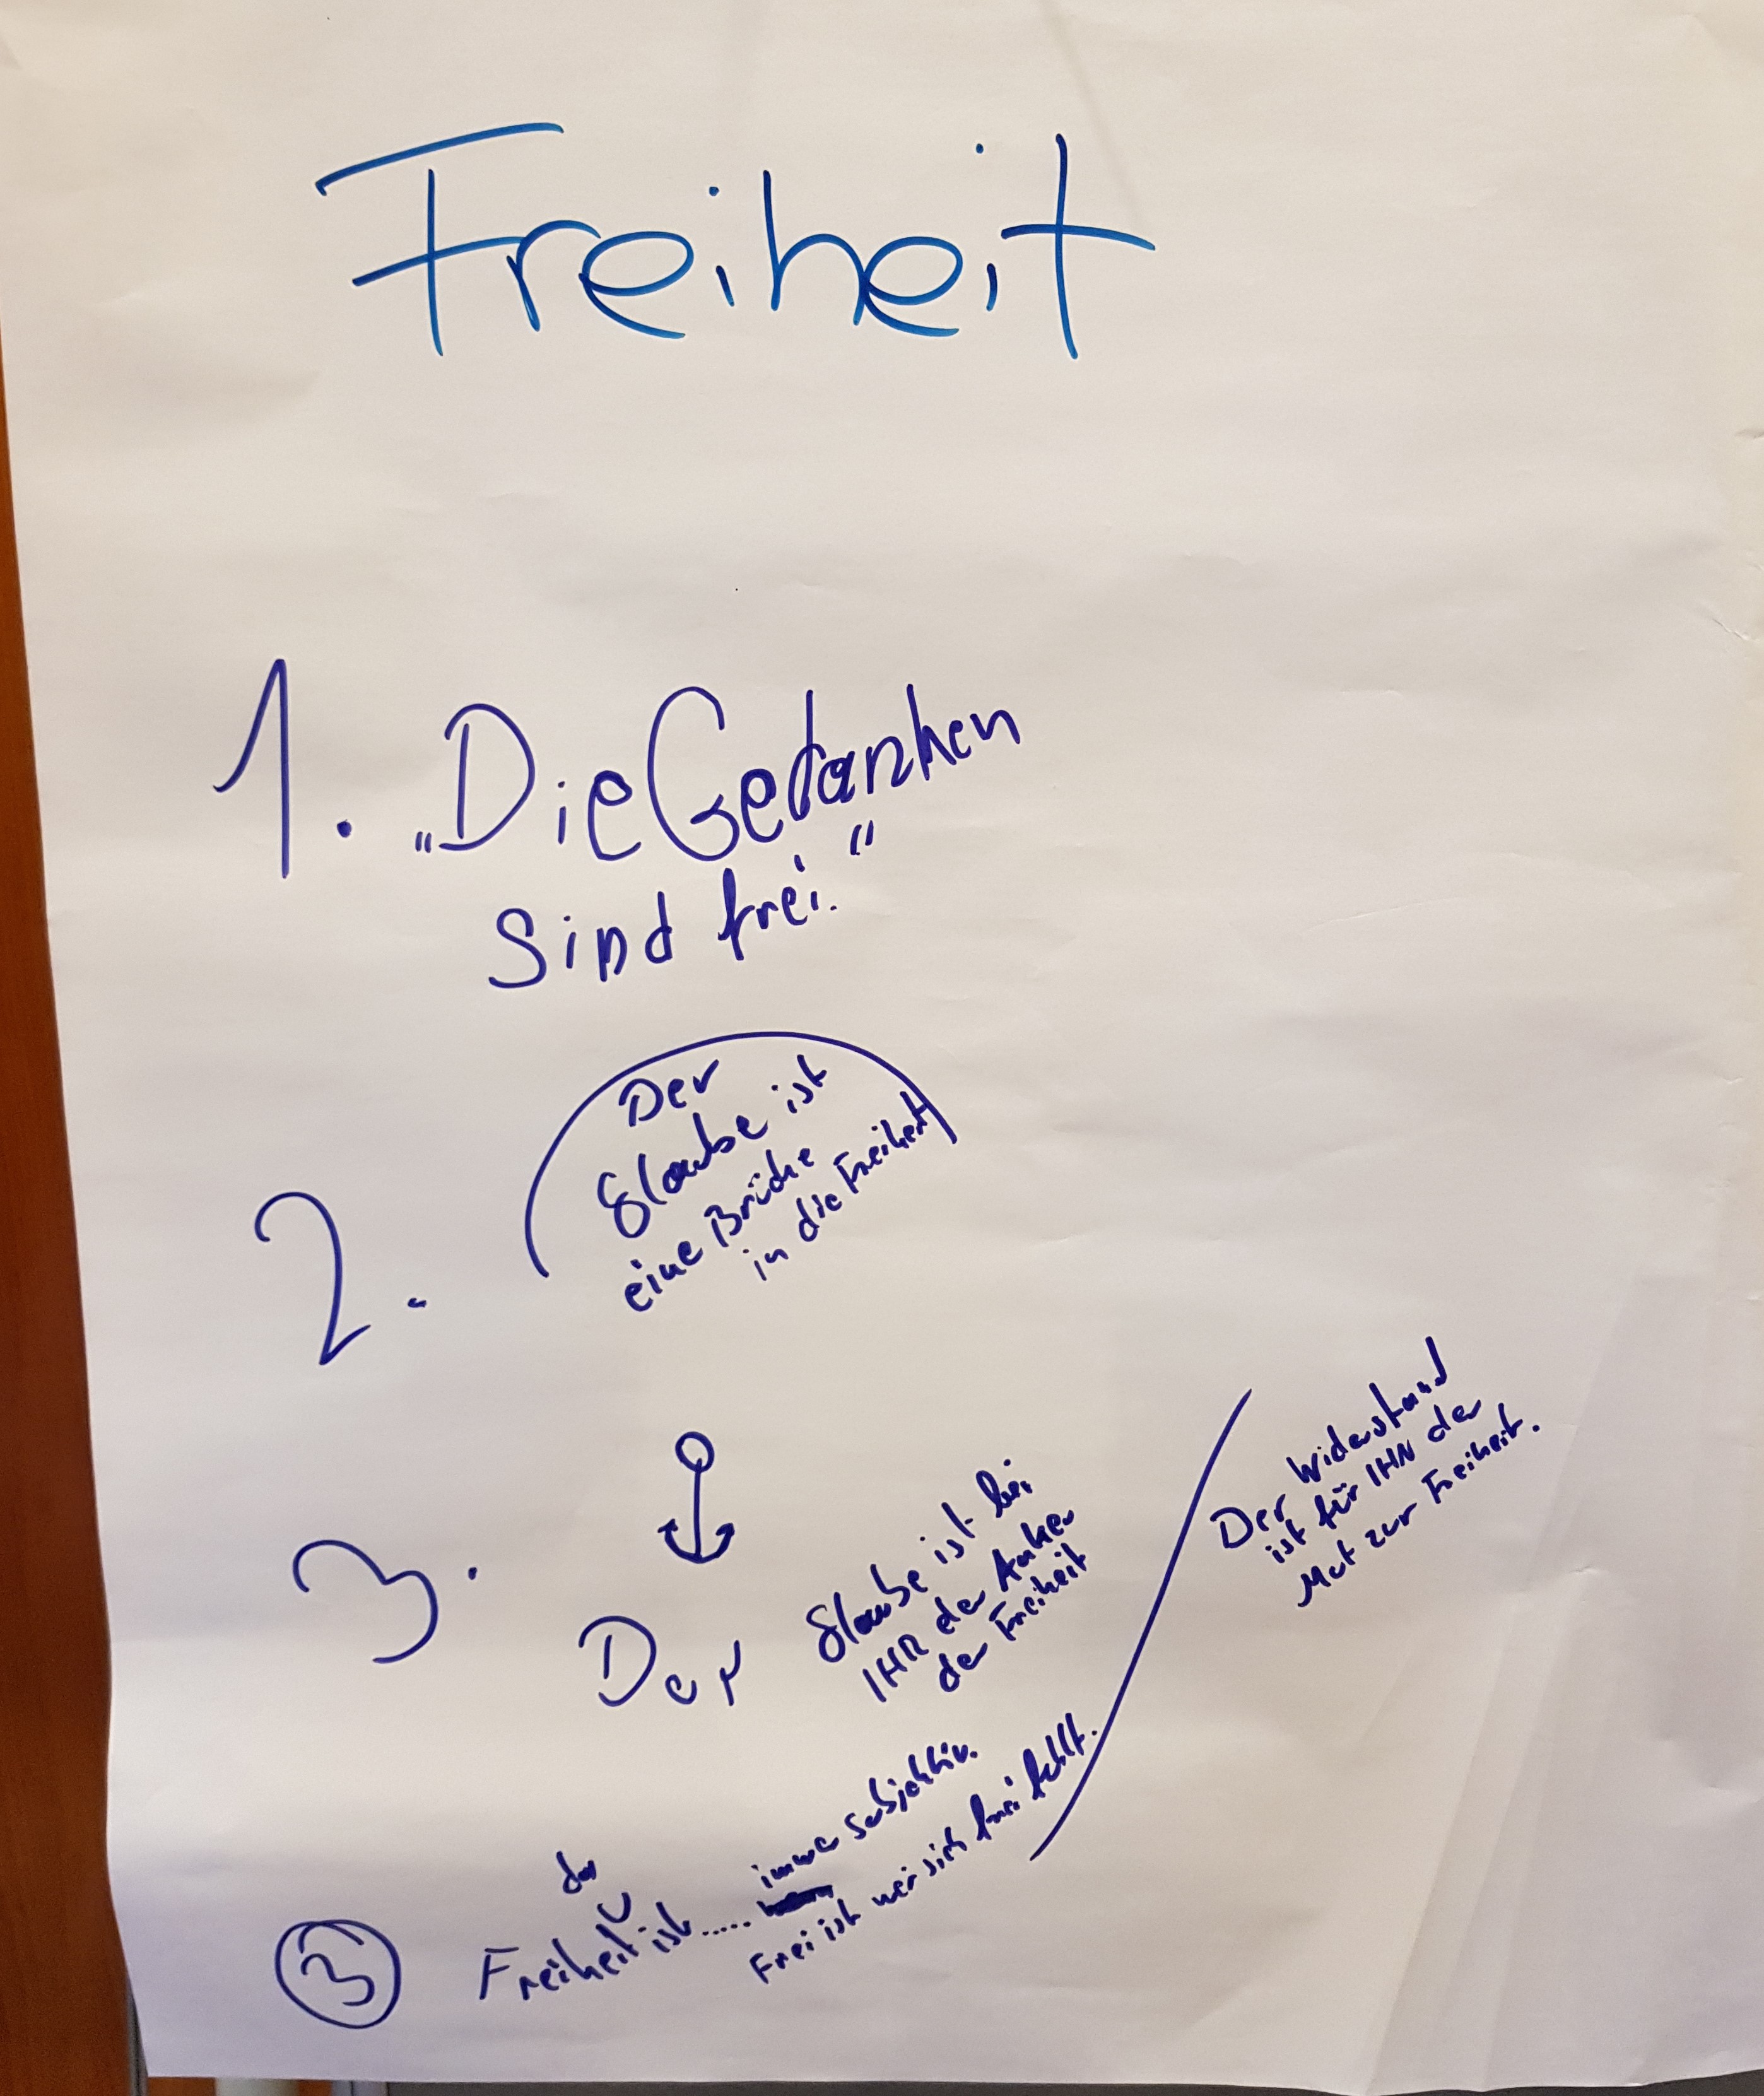 Freiheit
1. „Die Gedanken
sind frei."
2. Der
Glaube ist
eine Brücke
in die Freiheit
3. Der Glaube ist bei
IHR der Anker
der Freiheit
Der Widerstand
ist für IHN der
Mut zur Freiheit.
3 Freiheit ist ..... immer subjektiv.
Frei ist wer sich frei fühlt.